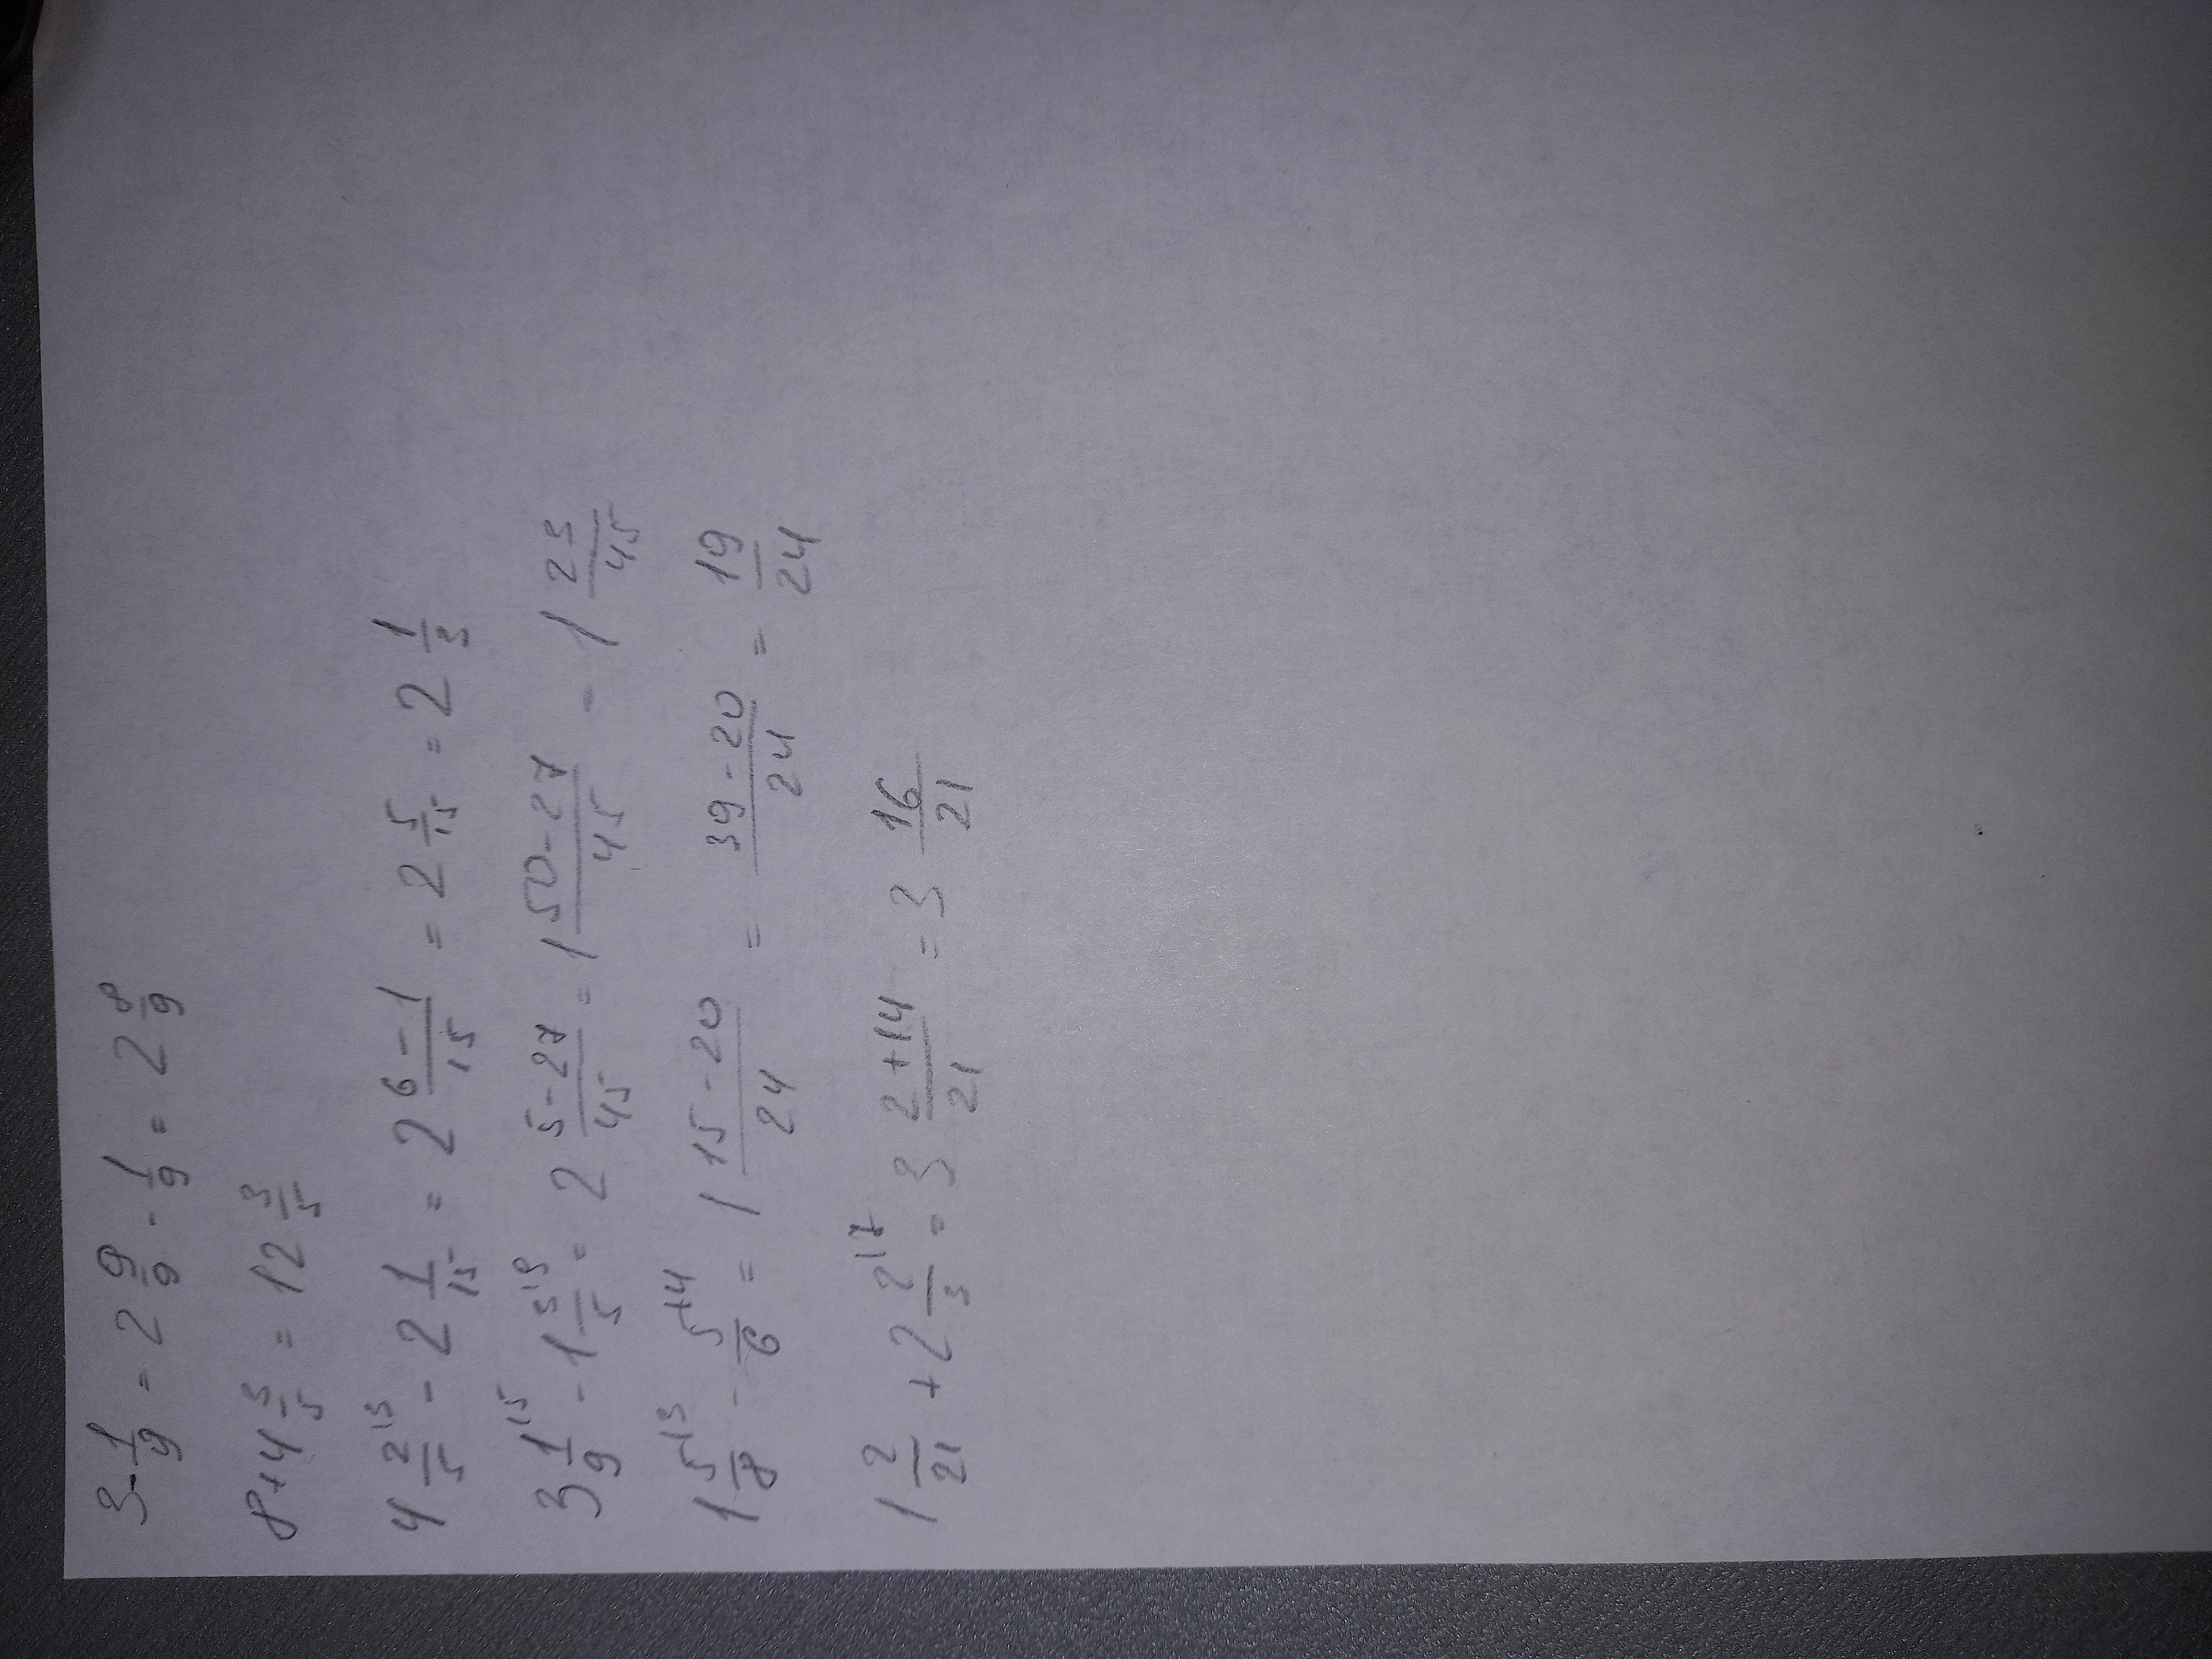 3 - 1/9 = 2 9/9 - 1/9 = 2 8/9
8 + 4 3/5 = 12 3/5
4 2/5 |3 - 2 1/15 = 2 6-1/15 = 2 5/15 = 2 1/3
3 1/9 |5 - 1 3/5 |9 = 2 5-27/45 = 1 50-27/45 - 1 23/45
1 5/8 |3 - 5/6 +4 = 1 15-20/24 = 39-20/24 = 19/24
1 2/21 + 2 2/3 |7 = 3 2+14/21 = 3 16/21